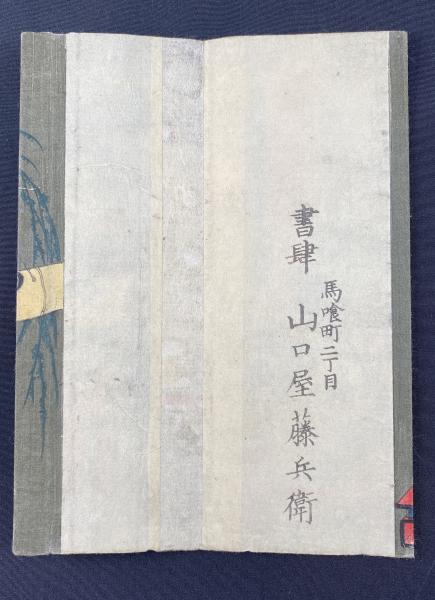 馬喰町二丁目
書肆 山口屋藤兵衛